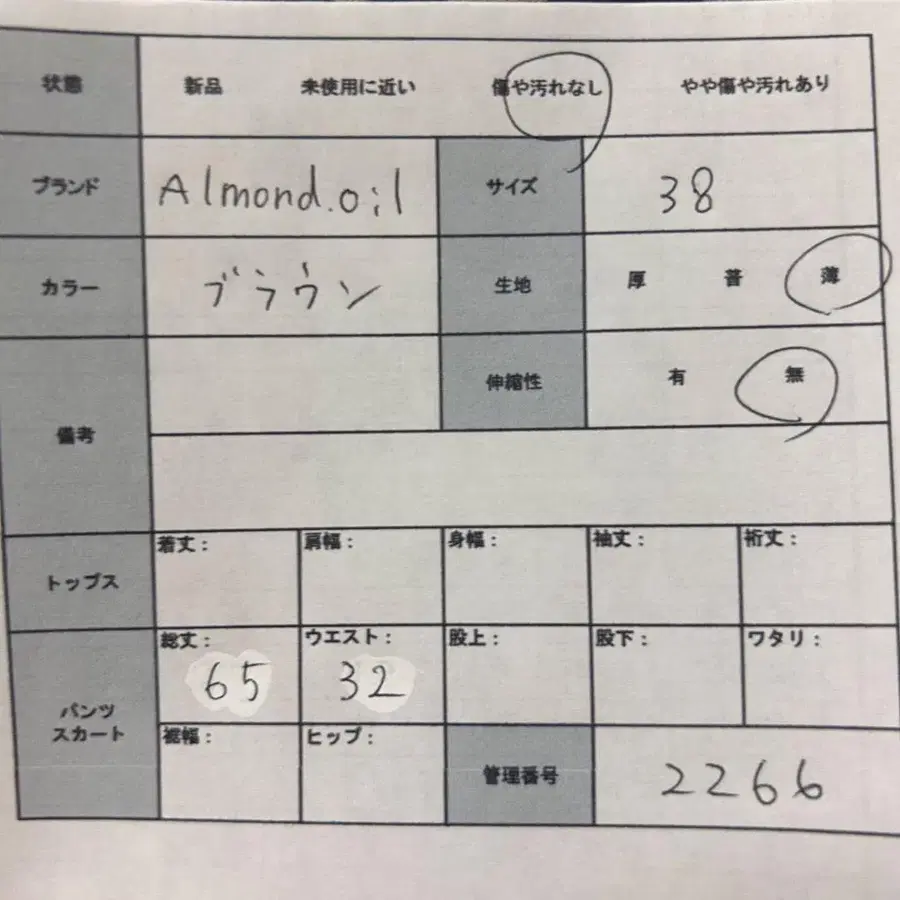 状態 新品 未使用に近い 傷や汚れなし やや傷や汚れあり
ブランド Almond.oil サイズ 38
カラー ブラウン 生地 厚 普 薄
備考 伸縮性 有 無
トップス 着丈: 肩幅: 身幅: 袖丈: 裄丈:
パンツ スカート 総丈: 65 ウエスト: 32 股上: 股下: ワタリ:
裾幅: ヒップ: 管理番号 2266